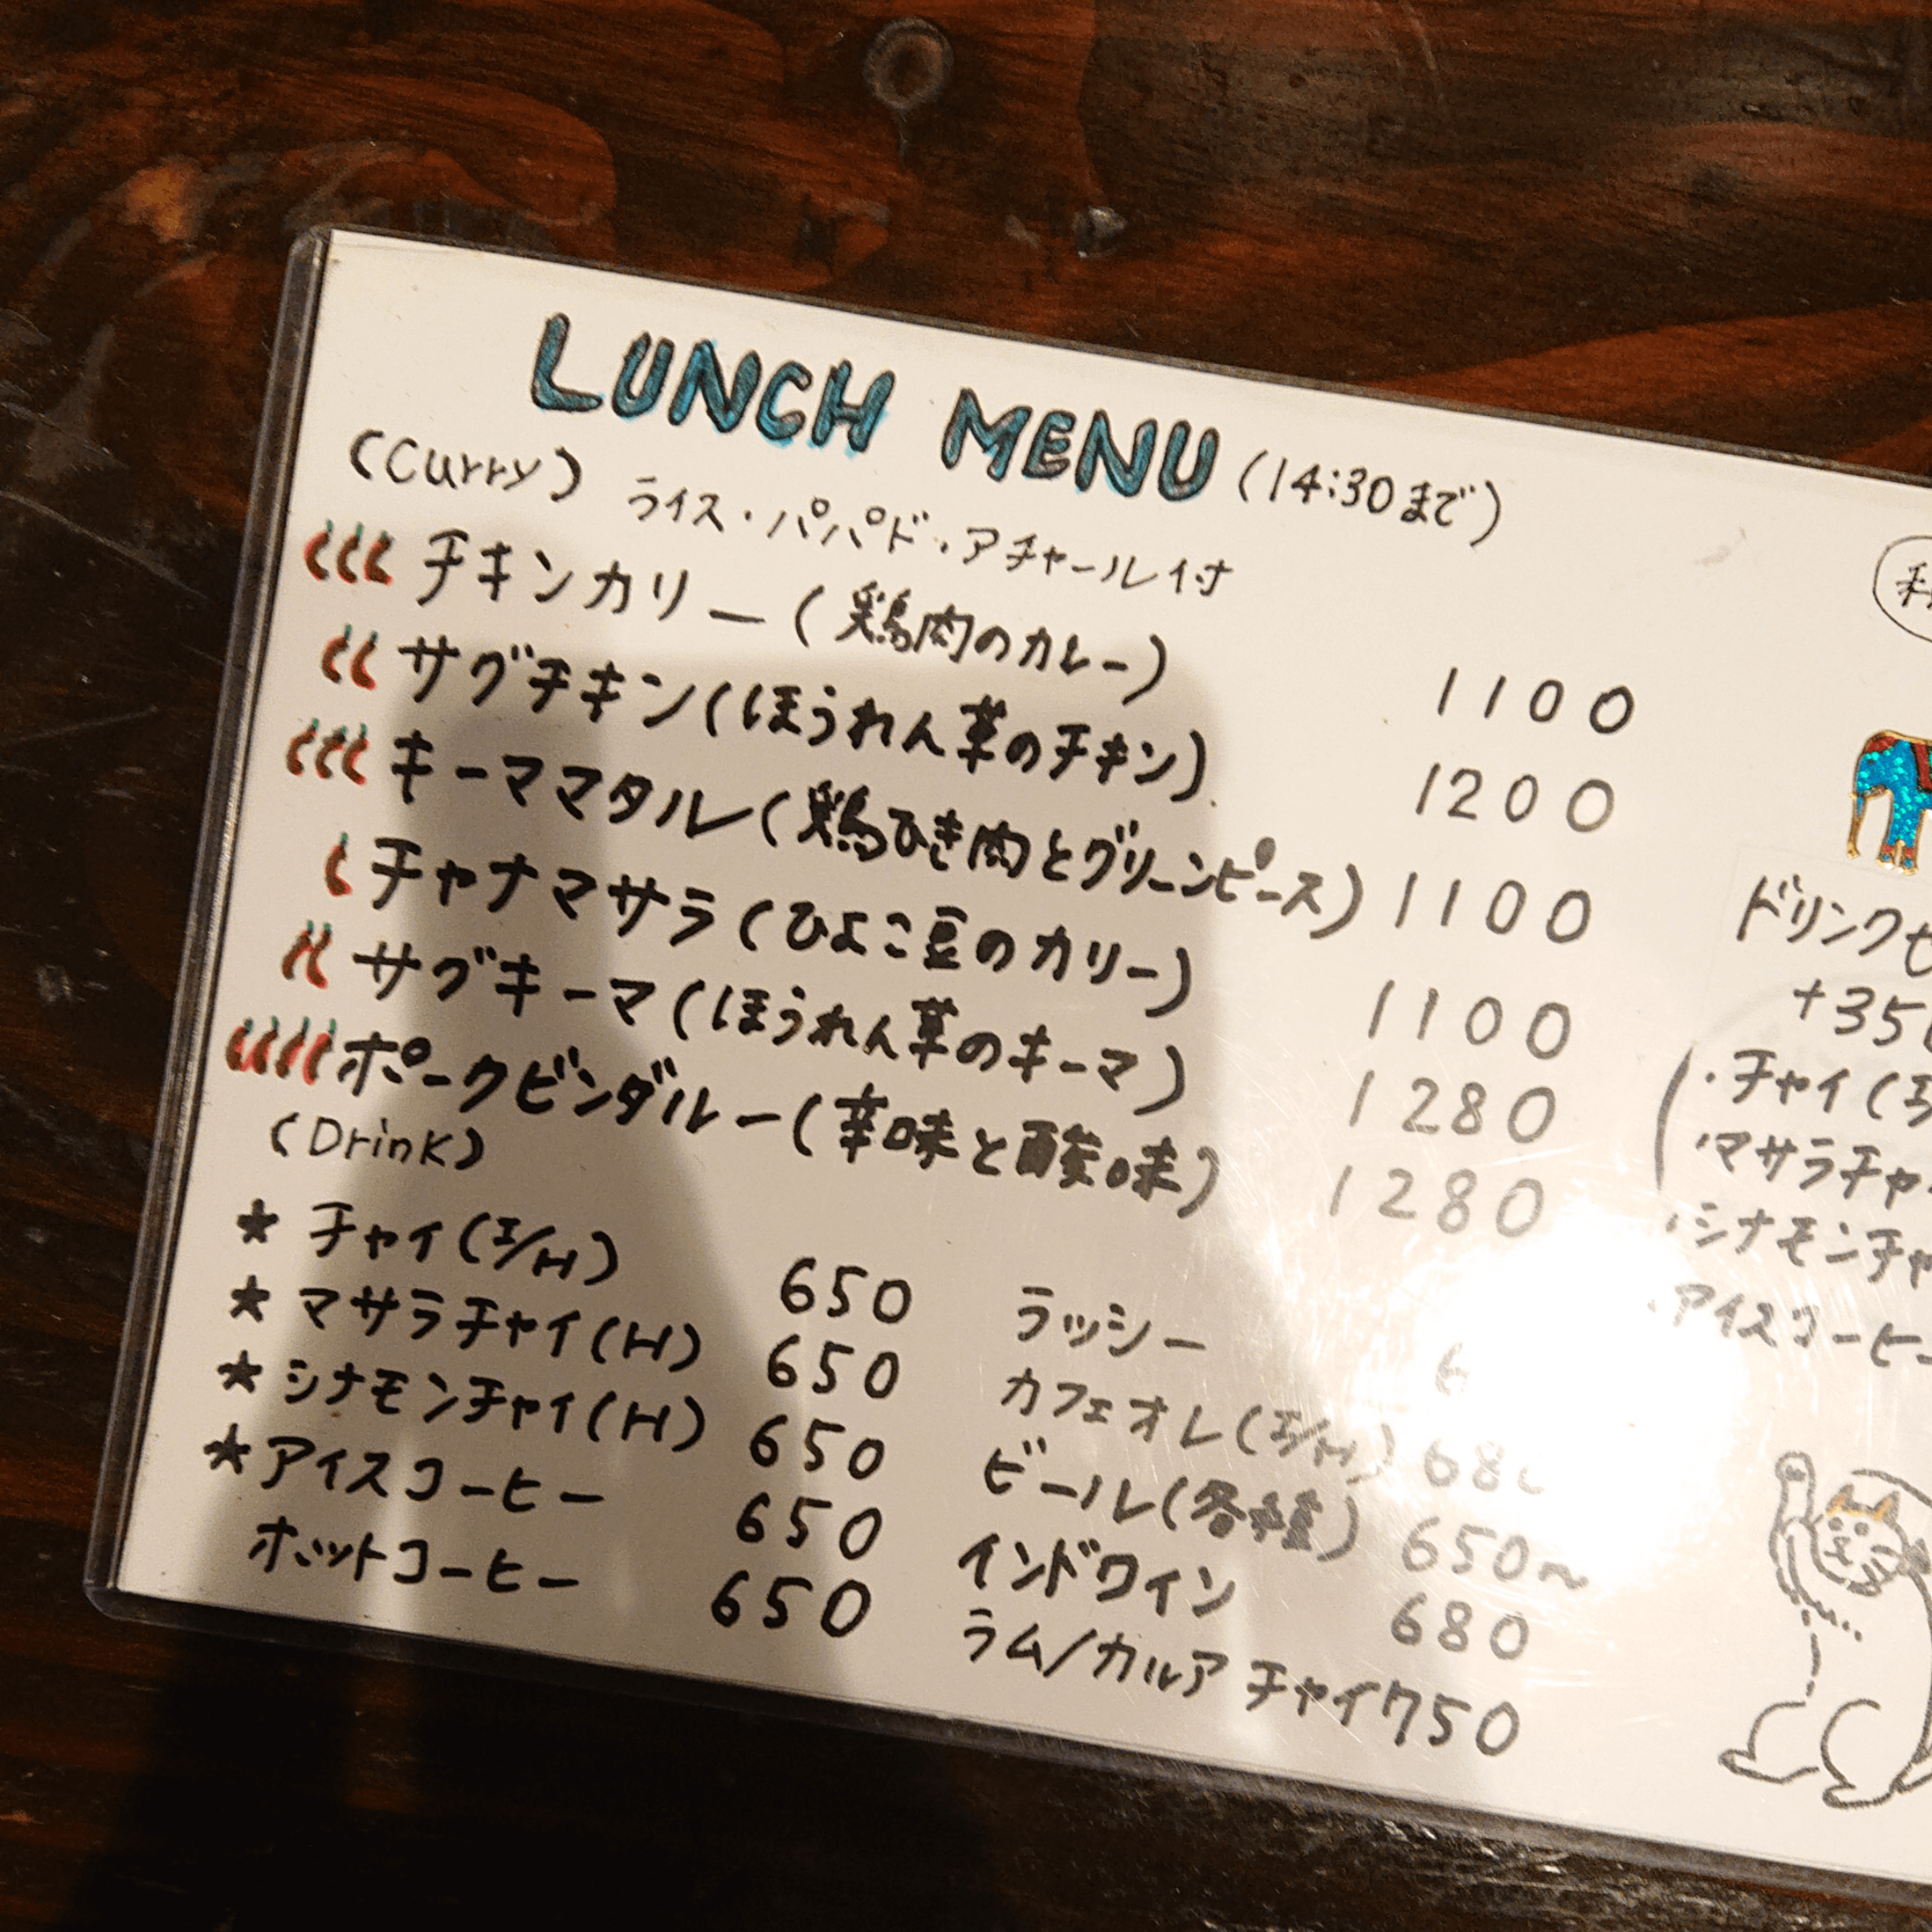 LUNCH MENU (14:30まで)
(Curry) ライス・パパド・アチャール付
チキンカリー(鶏肉のカレー) 1100
サグチキン(ほうれん草のチキン) 1200
キーママタル(鶏ひき肉とグリーンピース) 1100
チャナマサラ(ひよこ豆のカリー) 1100
サグキーマ(ほうれん草のキーマ) 1280
ポークビンダルー(辛味と酸味) 1280
(Drink)
★ チャイ(I/H) 650
★ マサラチャイ(H) 650
★ シナモンチャイ(H) 650
★ アイスコーヒー 650
ホットコーヒー 650
ラッシー 6
カフェオレ(I/H) 68
ビール(各種) 650〜
インドワイン 680
ラム/カルア チャイ 750
ドリンク
+35
・チャイ(I/
・マサラチャ
・シナモンチャ
・アイスコーヒー